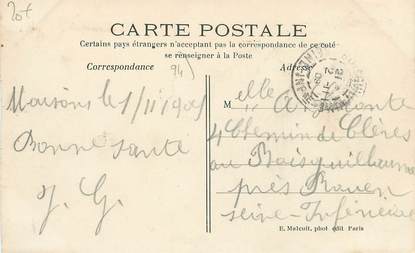 20+
CARTE POSTALE
Certains pays étrangers n'acceptant pas la correspondance de ce coté
se renseigner à la Poste
Correspondance
Adresse
94)
Maisons le 1/11/
Bonne Santé
J. G.
M elle
4 Chemin de Clères
au Boisguillaume
près Rouen
Seine-Inférieure
E. Malcuit, phot edit Paris